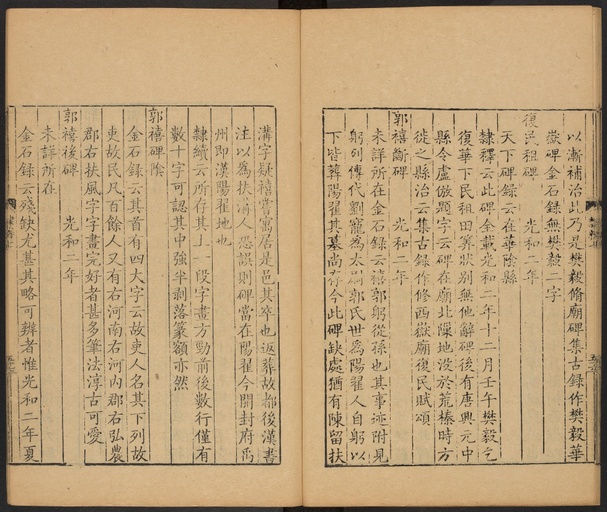 以漸補治此乃是樊毅脩廟碑集古録作樊毅華
嶽碑金石録無樊毅二字
復民租碑 光和二年
天下碑録云在華陰縣
隸釋云此碑全載光和二年十二月壬午樊毅乞
復華下民租田筭狀别無他辭碑後有唐興元中
縣令盧倣題字云碑在廟北隟地没於荒榛時方
徙之縣治云集古録作修西嶽廟復民賦頌
郭禧斷碑 光和二年
未詳所在金石録云禧郭躬從孫也其事迹附見
躬列傳代劉寵為太尉郭氏世為陽翟人自躬以
下皆葬陽翟其墓尚存今此碑缺處猶有陳留扶
溝字疑禧嘗寓居是邑其卒也返葬故都後漢書
注以為扶溝人恐誤則碑當在陽翟今開封府禹
州即漢陽翟地也
隸續云所存其上一段字畫方勁前後數行僅有
數十字可認其中強半剥落篆額亦然
郭禧碑陰
金石録云其首有四大字云故吏人名其下列故
吏故民凡百餘人又有右河南右河内郡右弘農
郡右扶風字字畫完好者甚多筆法淳古可愛
郭禧後碑 光和二年
未詳所在
金石録云殘缺尤甚其略可辨者惟光和二年夏